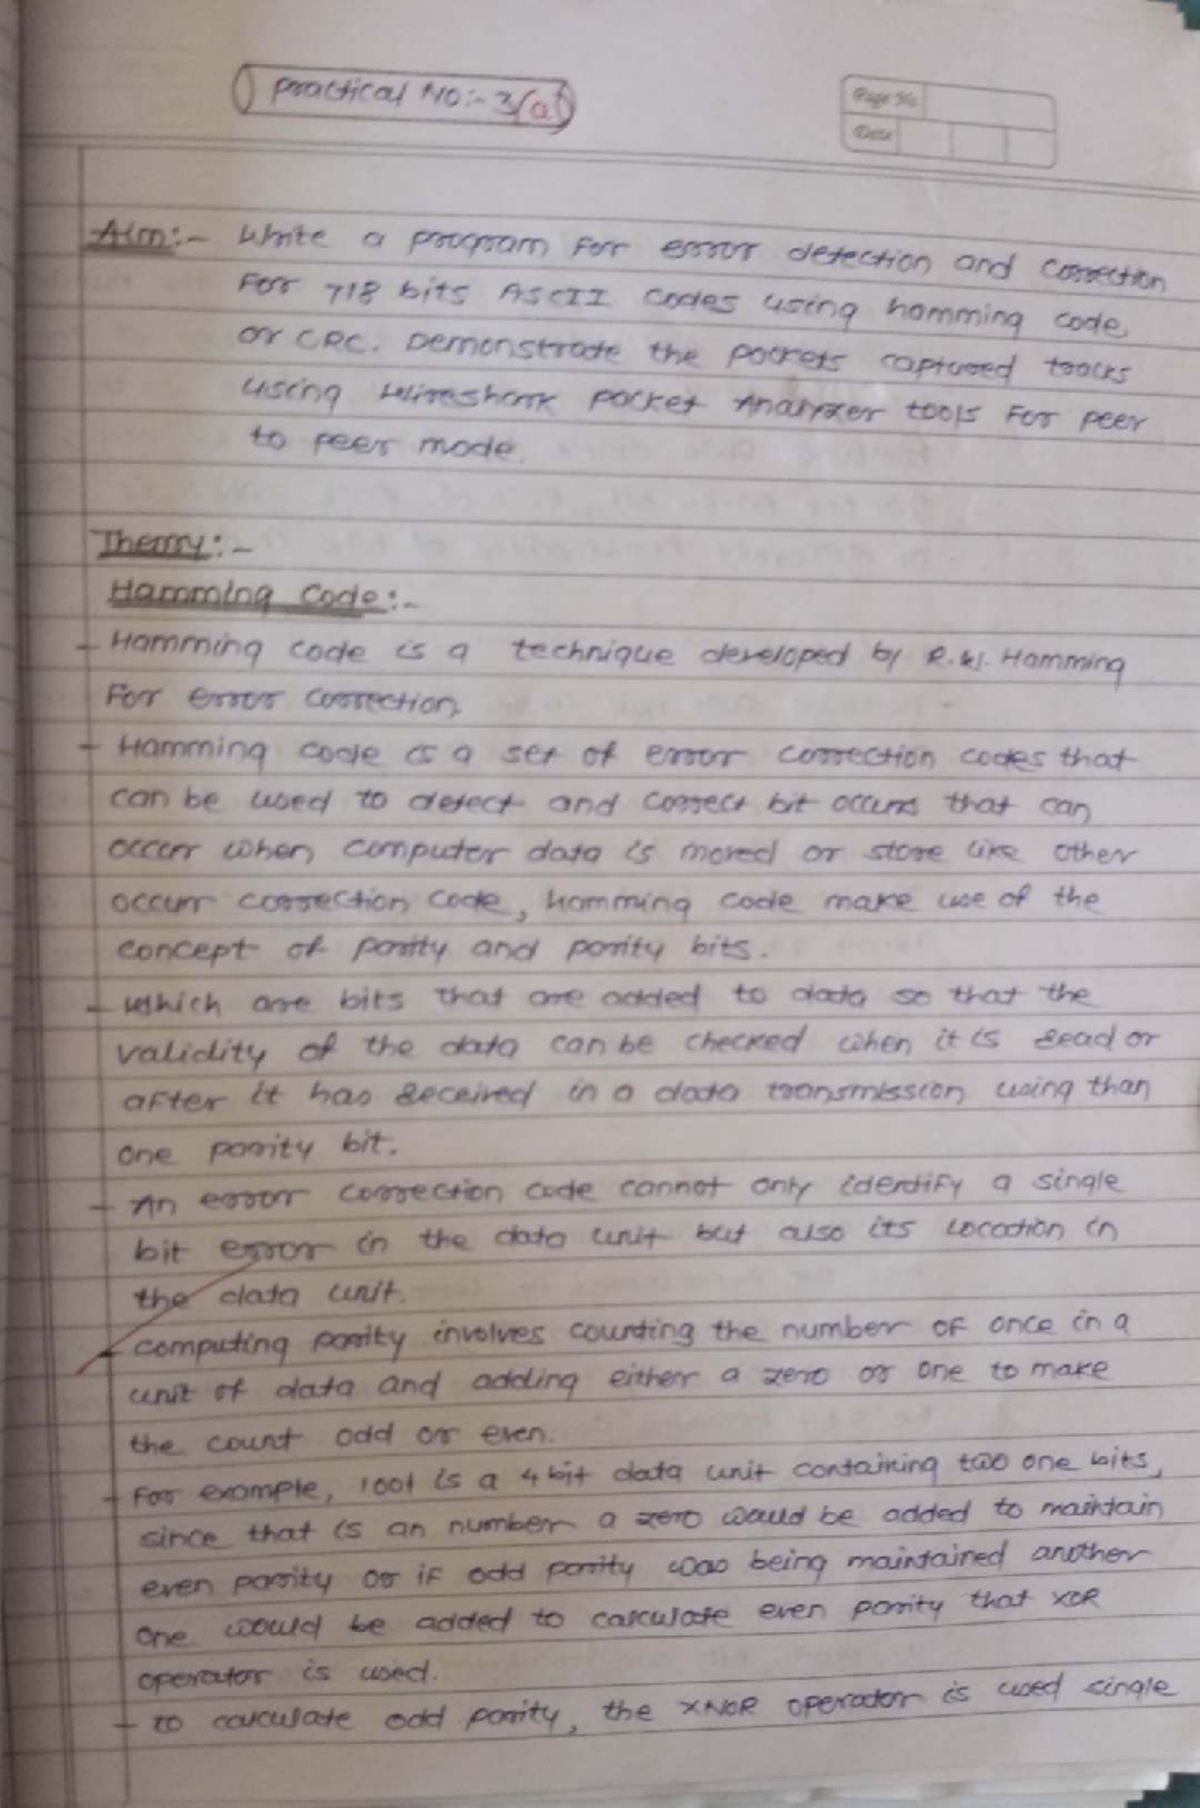 Practical No:- 3(a)
Page No.
Date
Aim:- Write a program for error detection and correction
For 718 bits ASCII codes using hamming code,
or CRC. Demonstrate the packets captured tracks
using Wireshark packet Analyzer tools For peer
to peer mode.
Theory:-
Hamming Code:-
- Hamming code is a technique developed by R.W. Hamming
For error correction.
- Hamming code is a set of error correction codes that
can be used to detect and correct bit occurs that can
occur when computer data is moved or store like other
occurr correction code, hamming code make use of the
concept of parity and parity bits.
- Which are bits that are added to data so that the
validity of the data can be checked when it is read or
after it has received in a data transmission using than
one parity bit.
- An error correction code cannot only identify a single
bit error in the data unit but also its location in
the data unit.
- computing parity involves counting the number of once in a
unit of data and adding either a zero or one to make
the count odd or even.
- For example, 1001 is a 4 bit data unit containing two one bits,
since that is an number a zero would be added to maintain
even parity or if odd parity was being maintained another
one would be added to calculate even parity that XOR
operator is used.
- to calculate odd parity, the XNOR operator is used single